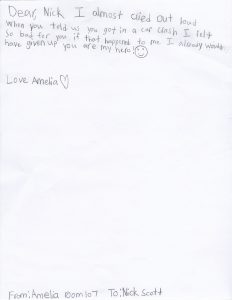 Dear, Nick I almost cried out loud
When you told us you got in a car crash I felt
so bad for you if that happened to me I already would
have given up you are my hero!
Love Amelia
From: Amelia Room 107 To: Nick Scott